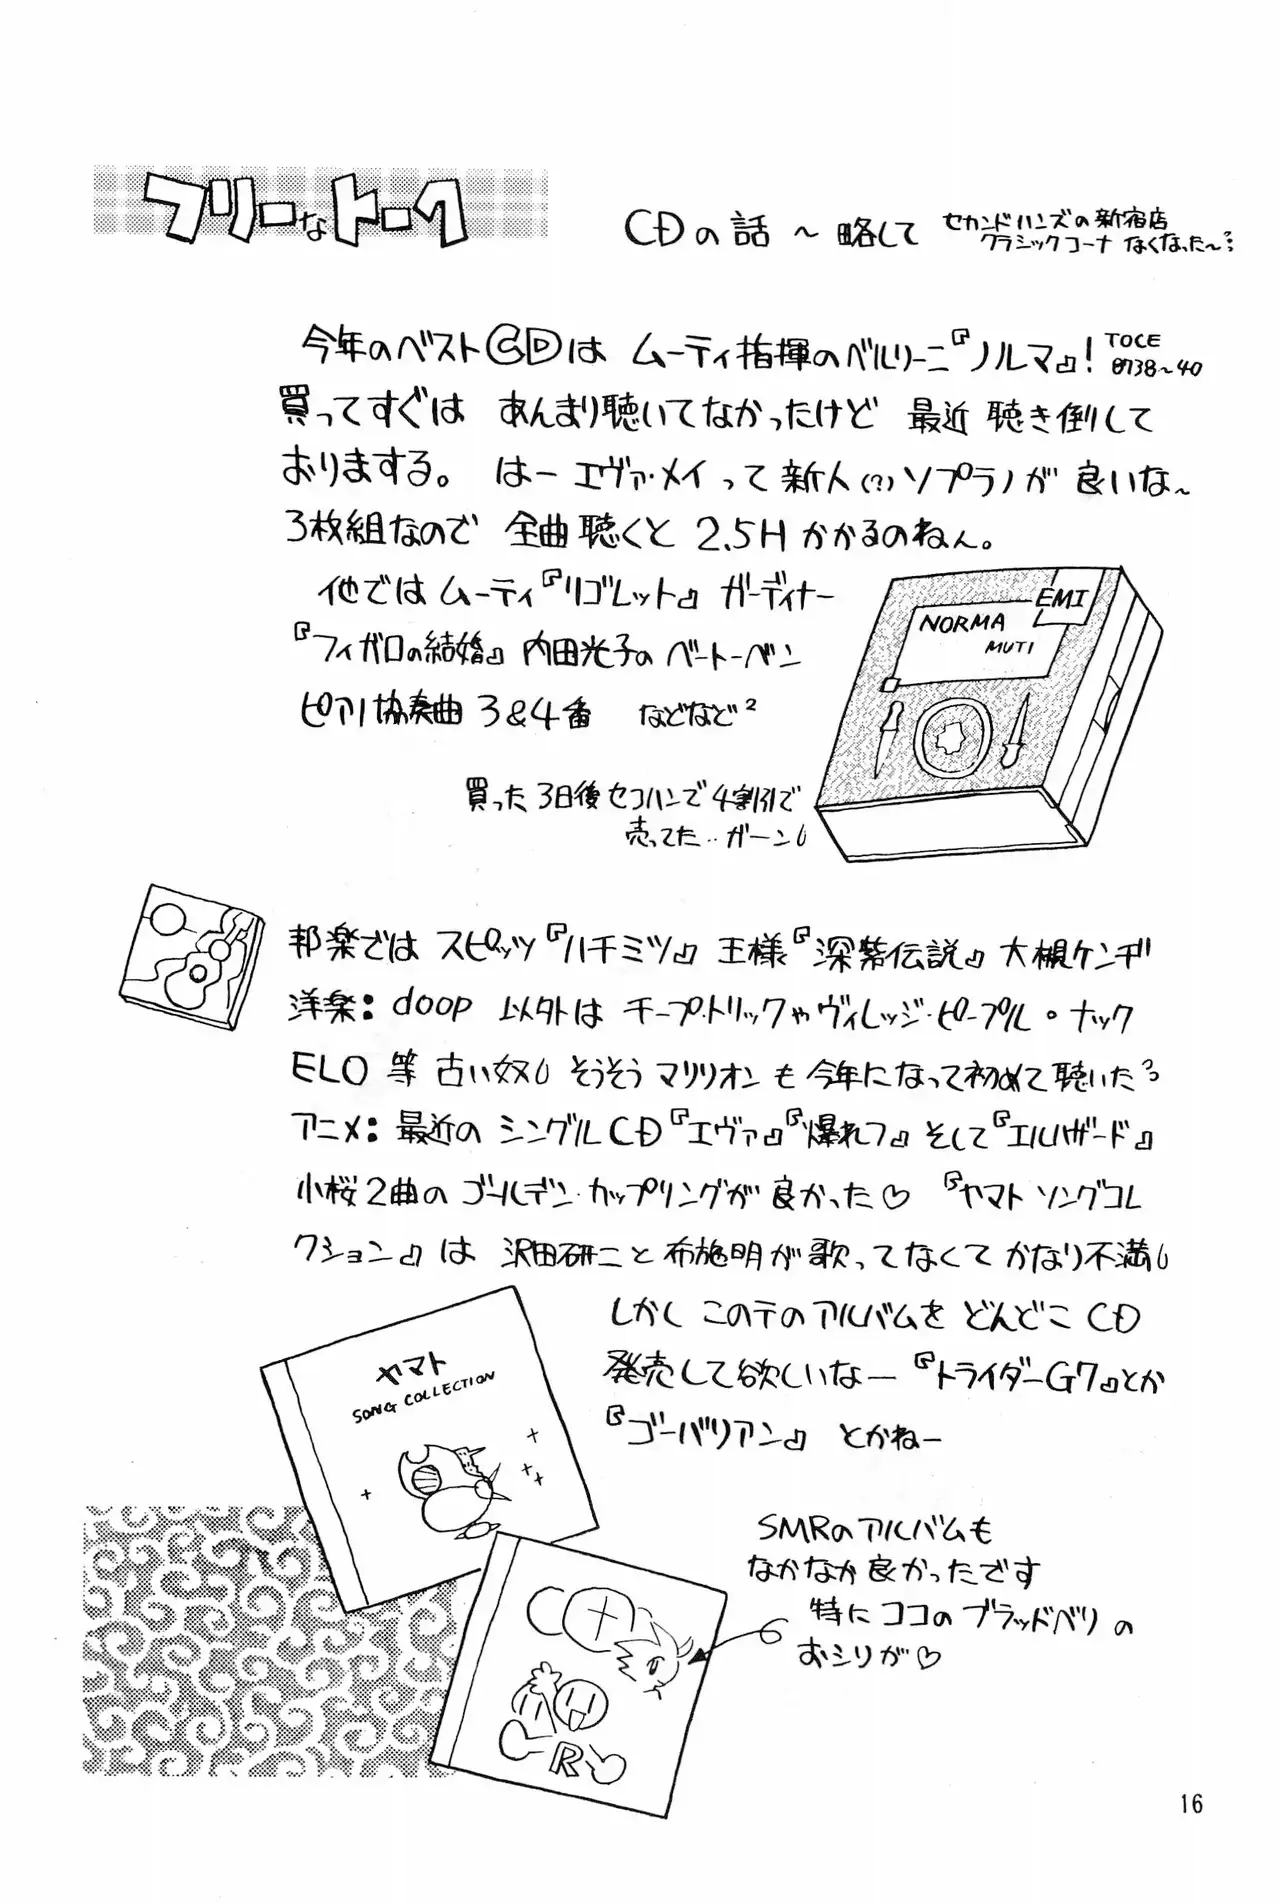 フリーなトーク
CDの話 ～ 略して セカンドハンズの新宿店
クラシックコーナ なくなった～
今年のベストCDは ムーティ指揮のベルリーニ『ノルマ』! TOCE
8738～40
買ってすぐは あんまり聴いてなかったけど 最近 聴き倒して
おりまする。 はー エヴァ・メイって 新人(?)ソプラノが 良いな～
3枚組なので 全曲聴くと 2.5H かかるのねん。
他では ムーティ『リゴレット』 ガーディナー
『フィガロの結婚』 内田光子の ベートーベン
ピアノ協奏曲 3&4番 などなど2
買った3日後セコハンで4割引で
売ってた‥ガーン
EMI
NORMA
MUTI
邦楽では スピッツ『ハチミツ』 王様『深紫伝説』 大槻ケンヂ
洋楽: doop 以外は チープ・トリックやヴィレッジ・ピープル・ナック
ELO 等 古い奴 そうそうマリリオンも 今年になって初めて聴いた
アニメ: 最近の シングルCD『エヴァ』『爆れフ』そして『エルハザード』
小桜2曲の ゴールデン・カップリングが 良かった♡ 『ヤマト ソングコレ
クション』は 沢田研二と 布施明が 歌ってなくて かなり不満
しかし このテのアルバムを どんどこ CD
発売して欲しいなー 『トライダーG7』とか
『ゴーバリアン』 とかねー
ヤマト
SONG COLLECTION
SMRのアルバムも
なかなか良かったです
特に ココの ブラッドベリ の
おシリが♡
R
16